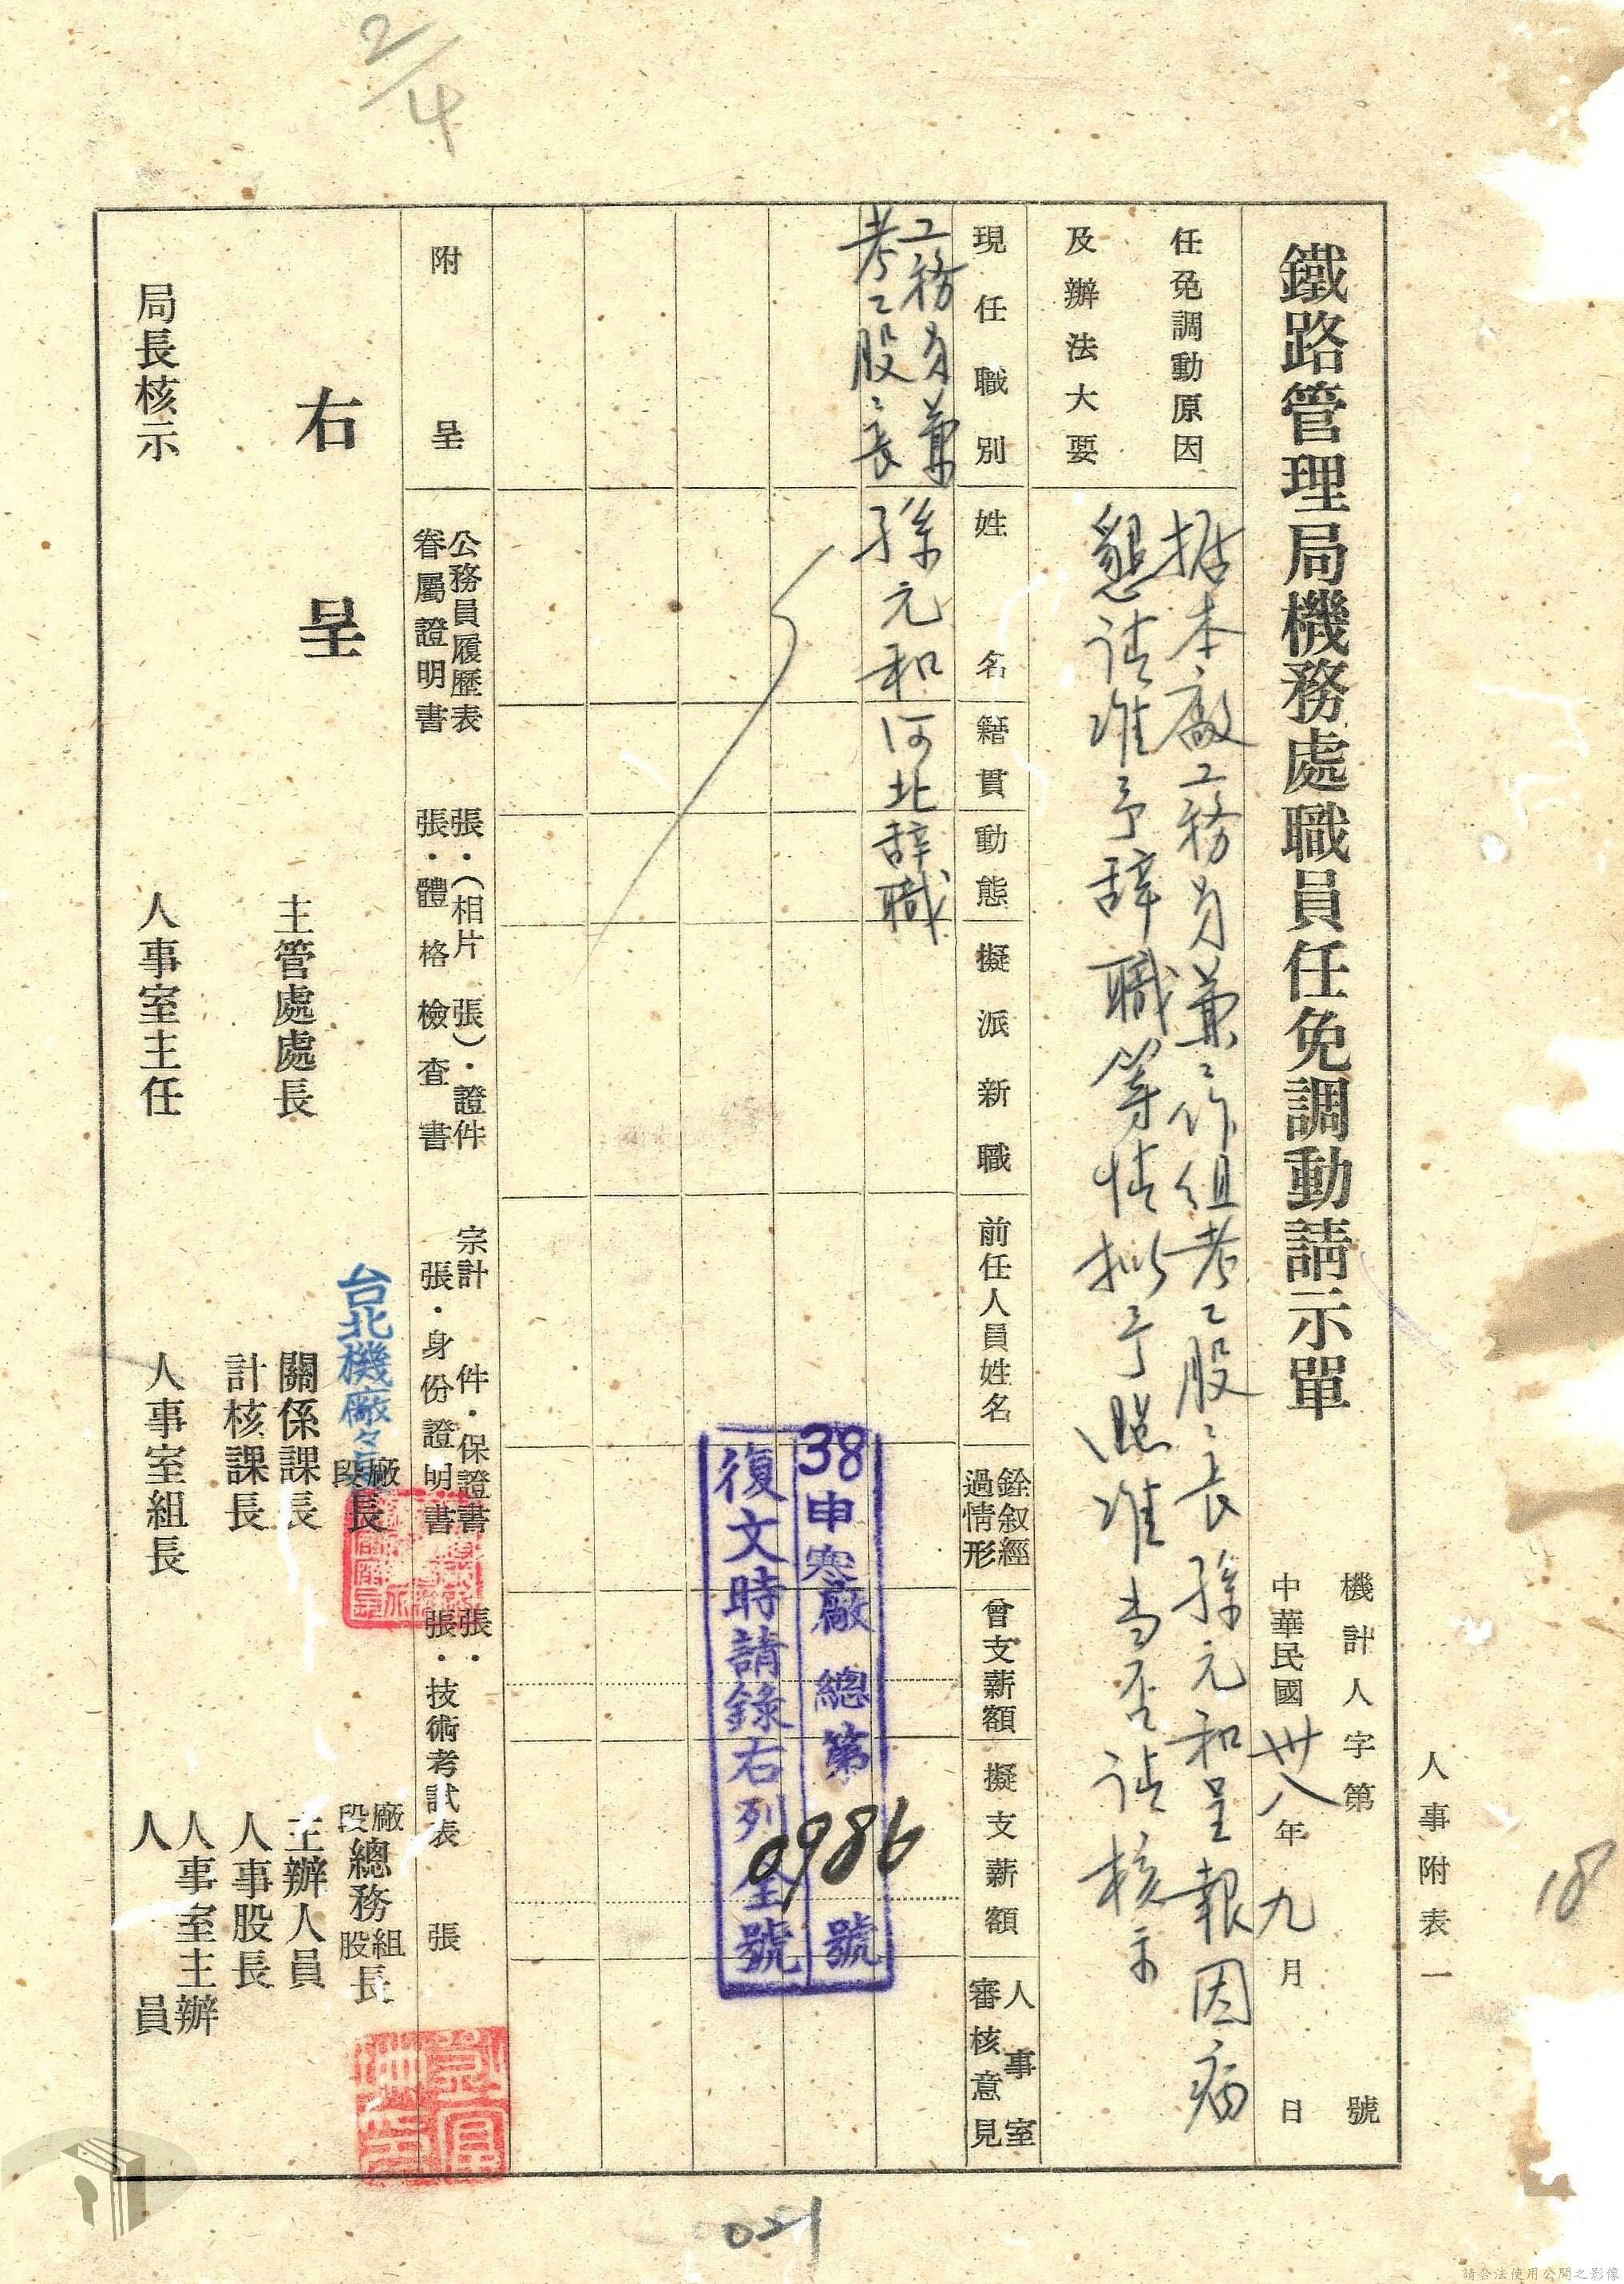 2/4
人事附表一
18
鐵路管理局機務處職員任免調動請示單
機計人字第 號
中華民國卅八年九月 日
任免調動原因
及辦法大要
據本廠工務員兼工作組考工股股長孫元和呈報因病
懇請准予辞職等情拟予照准当否請核示
現任職別
姓名
籍貫
動態
擬派新職
前任人員姓名
銓叙經
過情形
曾支薪額
擬支薪額
人事室
審核意見
工務員兼
考工股股長
孫元和
河北
辞職
38申寒廠總第0986號
復文時請錄右列全號
附呈
公務員履歷表 張·(相片 張)·證件 宗計 件·保證書 張·
眷屬證明書 張·體格檢查書 張·身份證明書 張·技術考試表 張
右呈
台北機廠々長
廠段長
廠段總務組股長
主管處處長
關係課長
主辦人員
計核課長
人事股長
局長核示
人事室主任
人事室組長
人事室主辦
人員
021
請合法使用公開之影像